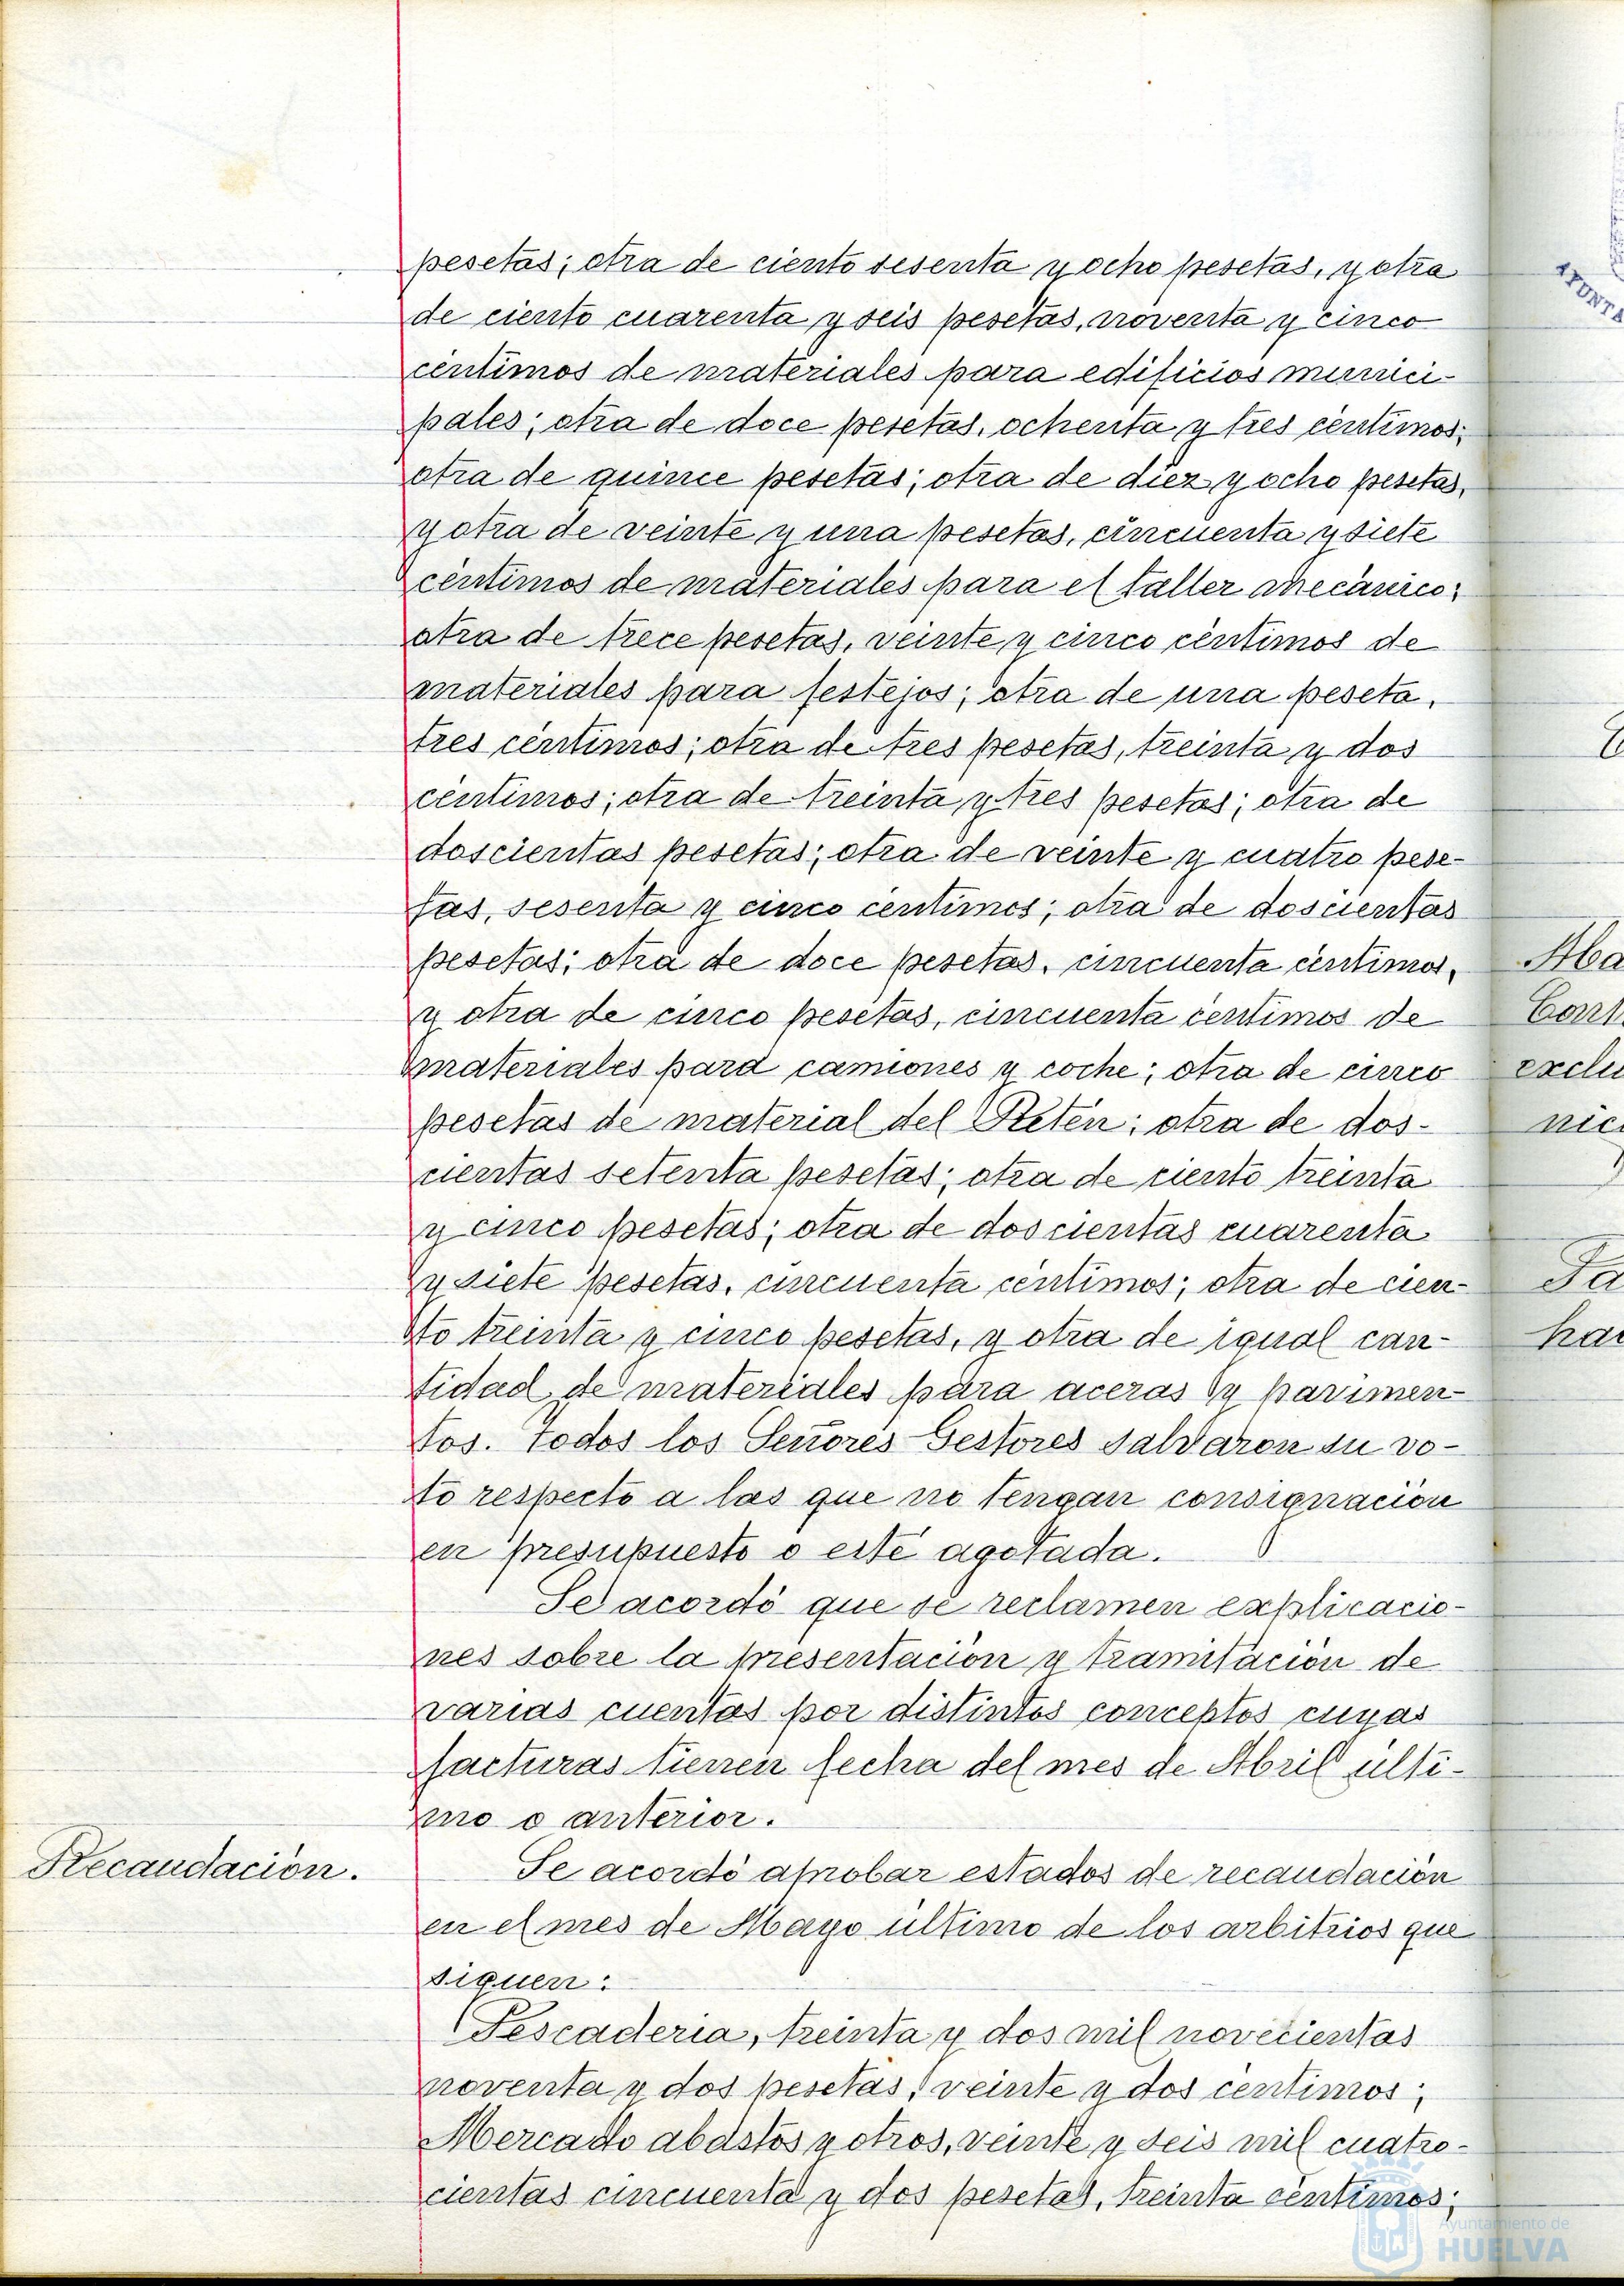 pesetas; otra de ciento sesenta y ocho pesetas, y otra
de ciento cuarenta y seis pesetas, noventa y cinco
céntimos de materiales para edificios munici-
pales; otra de doce pesetas, ochenta y tres céntimos;
otra de quince pesetas; otra de diez y ocho pesetas,
y otra de veinte y una pesetas, cincuenta y siete
céntimos de materiales para el taller mecánico;
otra de trece pesetas, veinte y cinco céntimos de
materiales para festejos; otra de una peseta,
tres céntimos; otra de tres pesetas, treinta y dos
céntimos; otra de treinta y tres pesetas; otra de
doscientas pesetas; otra de veinte y cuatro pese-
tas, sesenta y cinco centimos; otra de doscientas
pesetas; otra de doce pesetas, cincuenta céntimos,
y otra de cinco pesetas, cincuenta céntimos de
materiales para camiones y coche; otra de cinco
pesetas de material del Retén; otra de dos-
cientas setenta pesetas; otra de ciento treinta
y cinco pesetas; otra de doscientas cuarenta
y siete pesetas, cincuenta céntimos; otra de cien-
to treinta y cinco pesetas, y otra de igual can-
tidad de materiales para aceras y pavimen-
tos. Todos los Señores Gestores salvaron su vo-
to respecto a las que no tengan consignación
en presupuesto o esté agotada.
Se acordó que se reclamen explicacio-
nes sobre la presentación y tramitación de
varias cuentas por distintos conceptos cuyas
facturas tienen fecha del mes de Abril últi-
mo o anterior.
Recaudación.
Se acordó aprobar estados de recaudación
en el mes de Mayo último de los arbitrios que
siguen:
Pescaderia, treinta y dos mil novecientas
noventa y dos pesetas, veinte y dos céntimos;
Mercado abastos y otros, veinte y seis mil cuatro-
cientas cincuenta y dos pesetas, treinta céntimos;
Ayuntamiento de
HUELVA